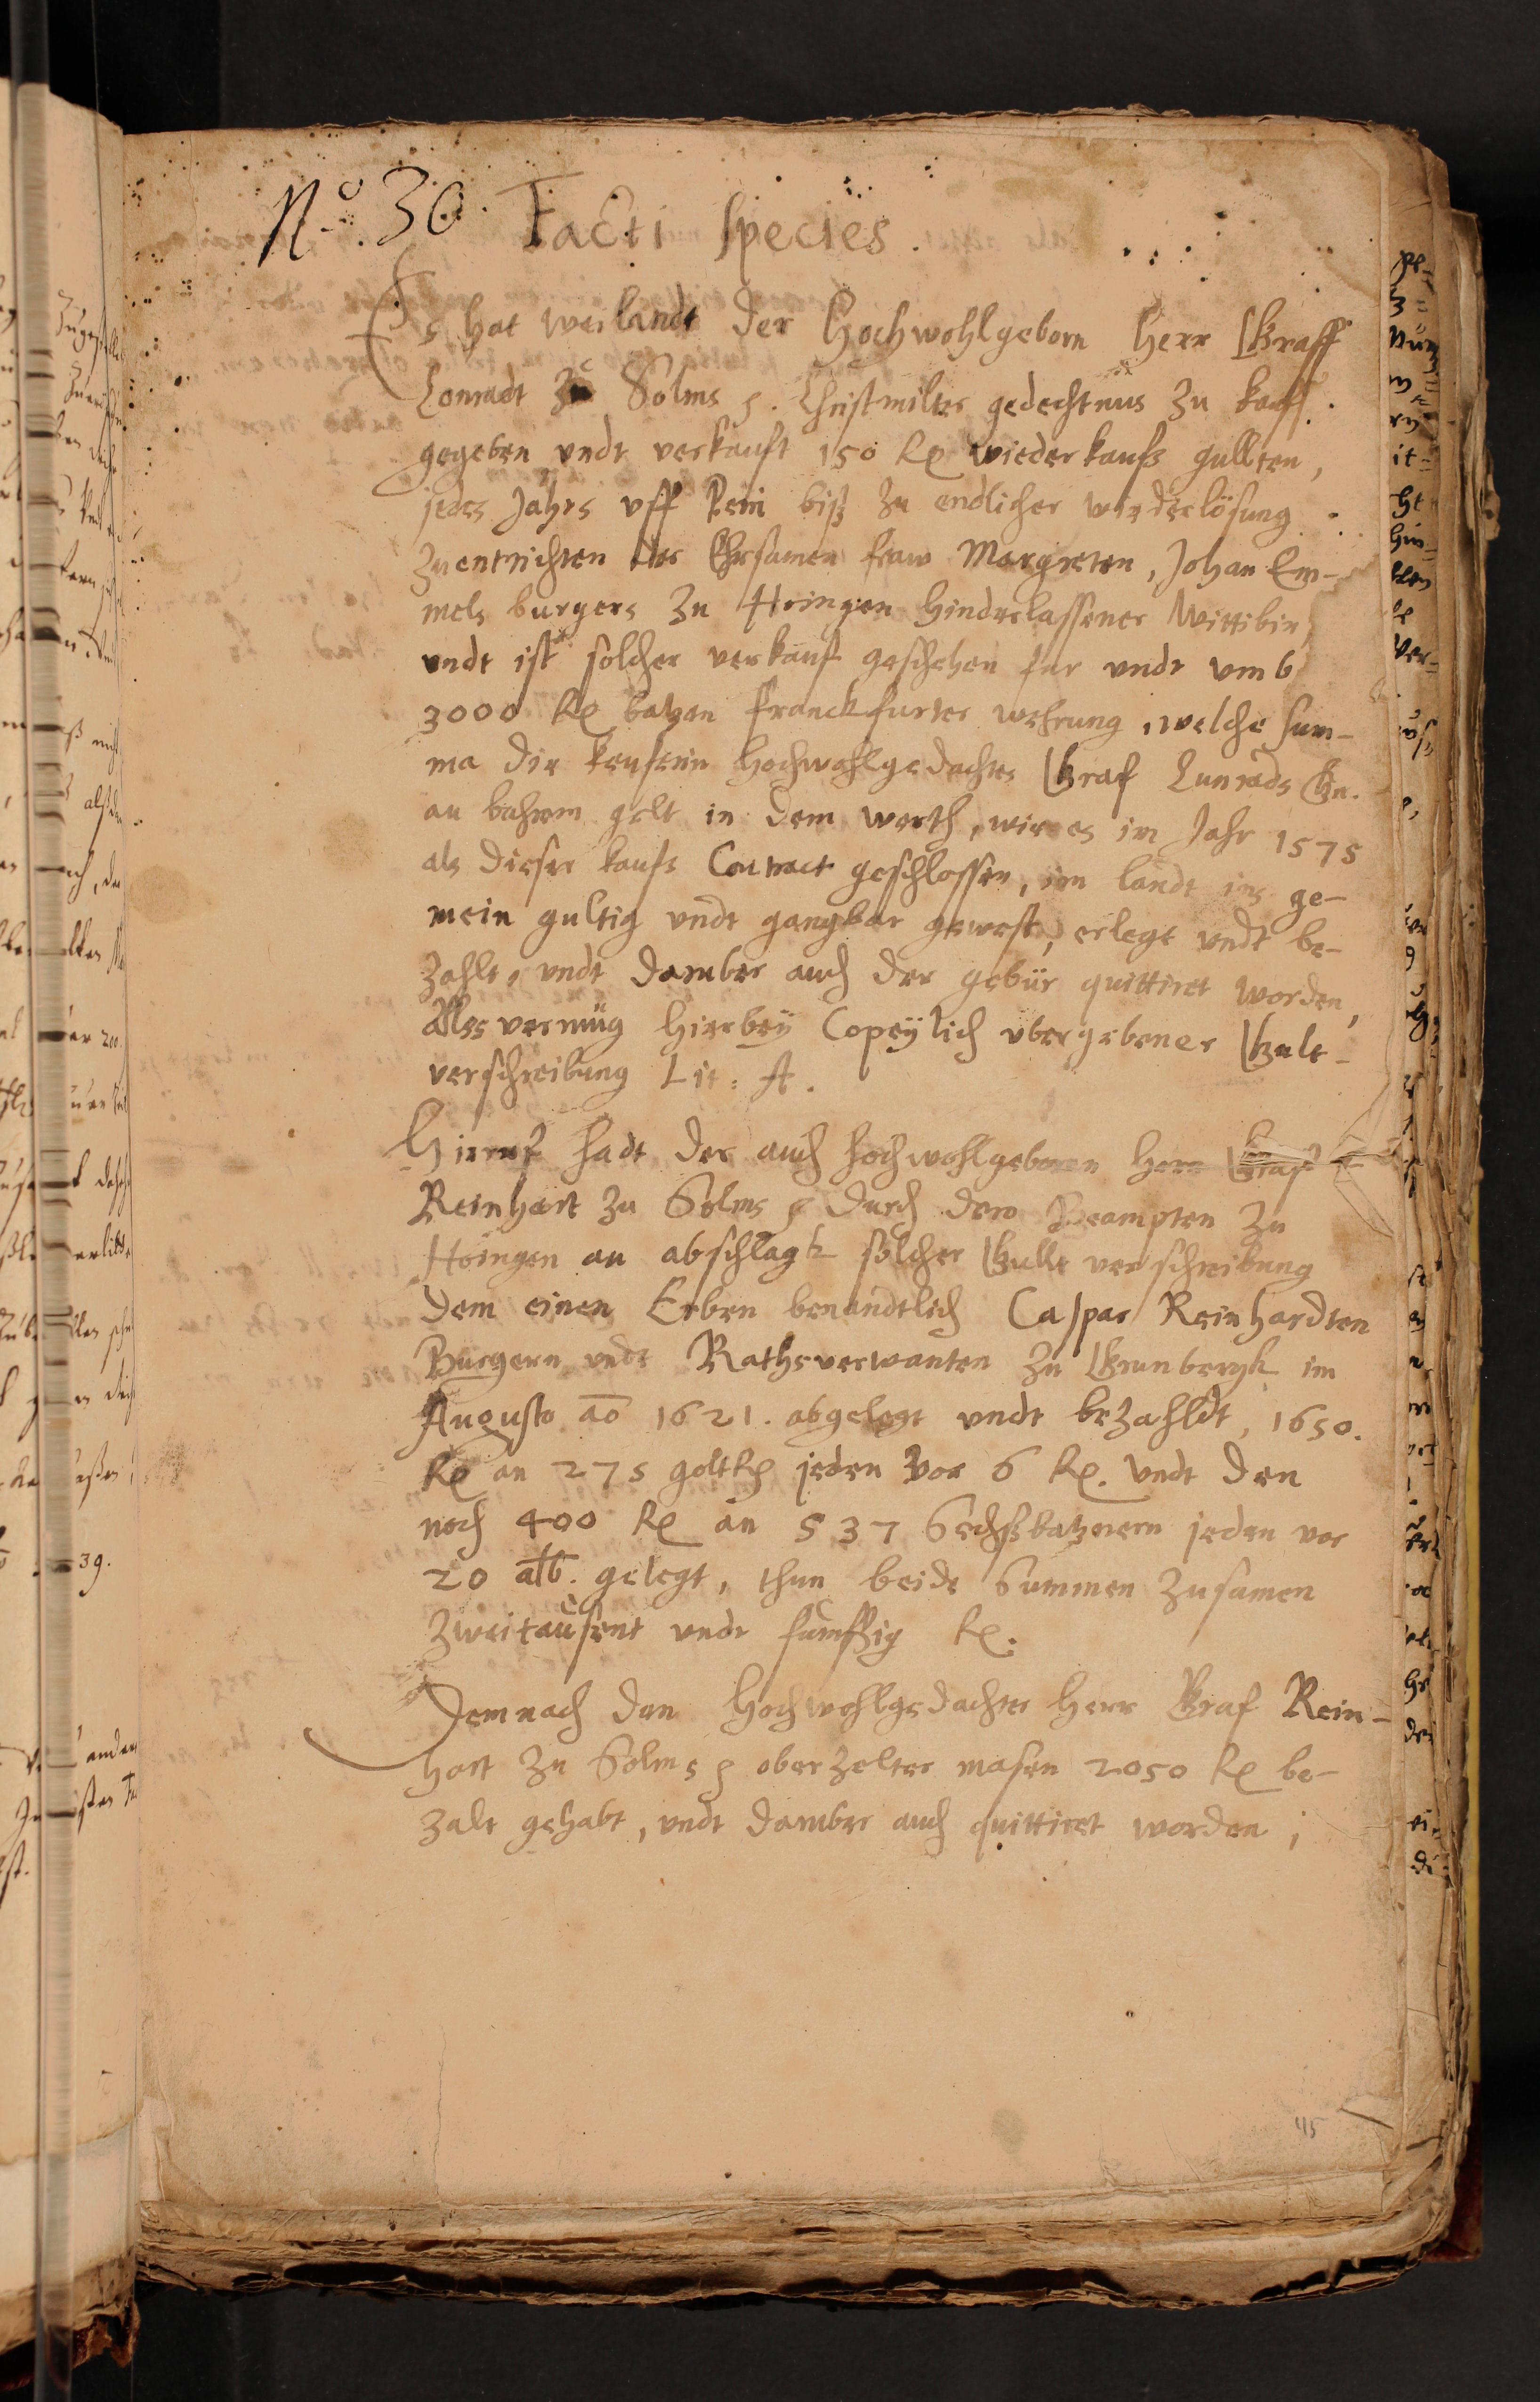 No. 30. Facti Species.
Es hat weilandt der Hochwohlgeborn Herr Graff
Conradt zu Solms p. Christmilter gedechtnus zu kauff
gegeben undt verkauft 150 fl wiederkaufs gullten,
jedes Jahrs uff biß zu endlicher wiederlösung
zuentrichten der Ehrsamen fraw Margreten, Johan Em-
mels burgers zu Hoingen hinderlassener Wittibin,
undt ist solcher verkauf geschehen fur undt umb
3000 fl batzen franckfurter wehrung, welche sum-
ma die keuferin hochwohlgedachter Graf Cunrads Gn.
an bahrem gelt in dem werth, wie es im Jahr 1575
als dieser kaufs Contract geschlossen, im landt ins ge-
mein gultig undt gangbar gewest, erlegt undt be-
zahlt, undt daruber auch der gebür quittiret worden,
Alss vermüg hierbey Copeylich ubergebener Gult-
verschreibung Lit: A.
Hieruf hadt der auch hochwohlgeboren Herr Graf
Reinhart zu Solms p durch dero Beampten zu
Hoingen an abschlagk solcher Gullt verschreibung
dem einen Erben benandtlich Caspar Reinhardten
Burgern undt Rathsverwanten zu Grunbergk im
Augusto ao 1621. abgelegt undt bezahldt, 1650.
fl an 275 goltfl jeden vor 6 fl. undt den
noch 400 fl an 537 Sechßbatznern jeden vor
20 alb. gelegt, thun beide Summen zusamen
zweitausent undt funffzig fl.
Demnach dan hochwohlgedachter Herr Graf Rein-
hart zu Solms p oberzelter masen 2050 fl be-
zalt gehabt, undt daruber auch quittiret worden;
45